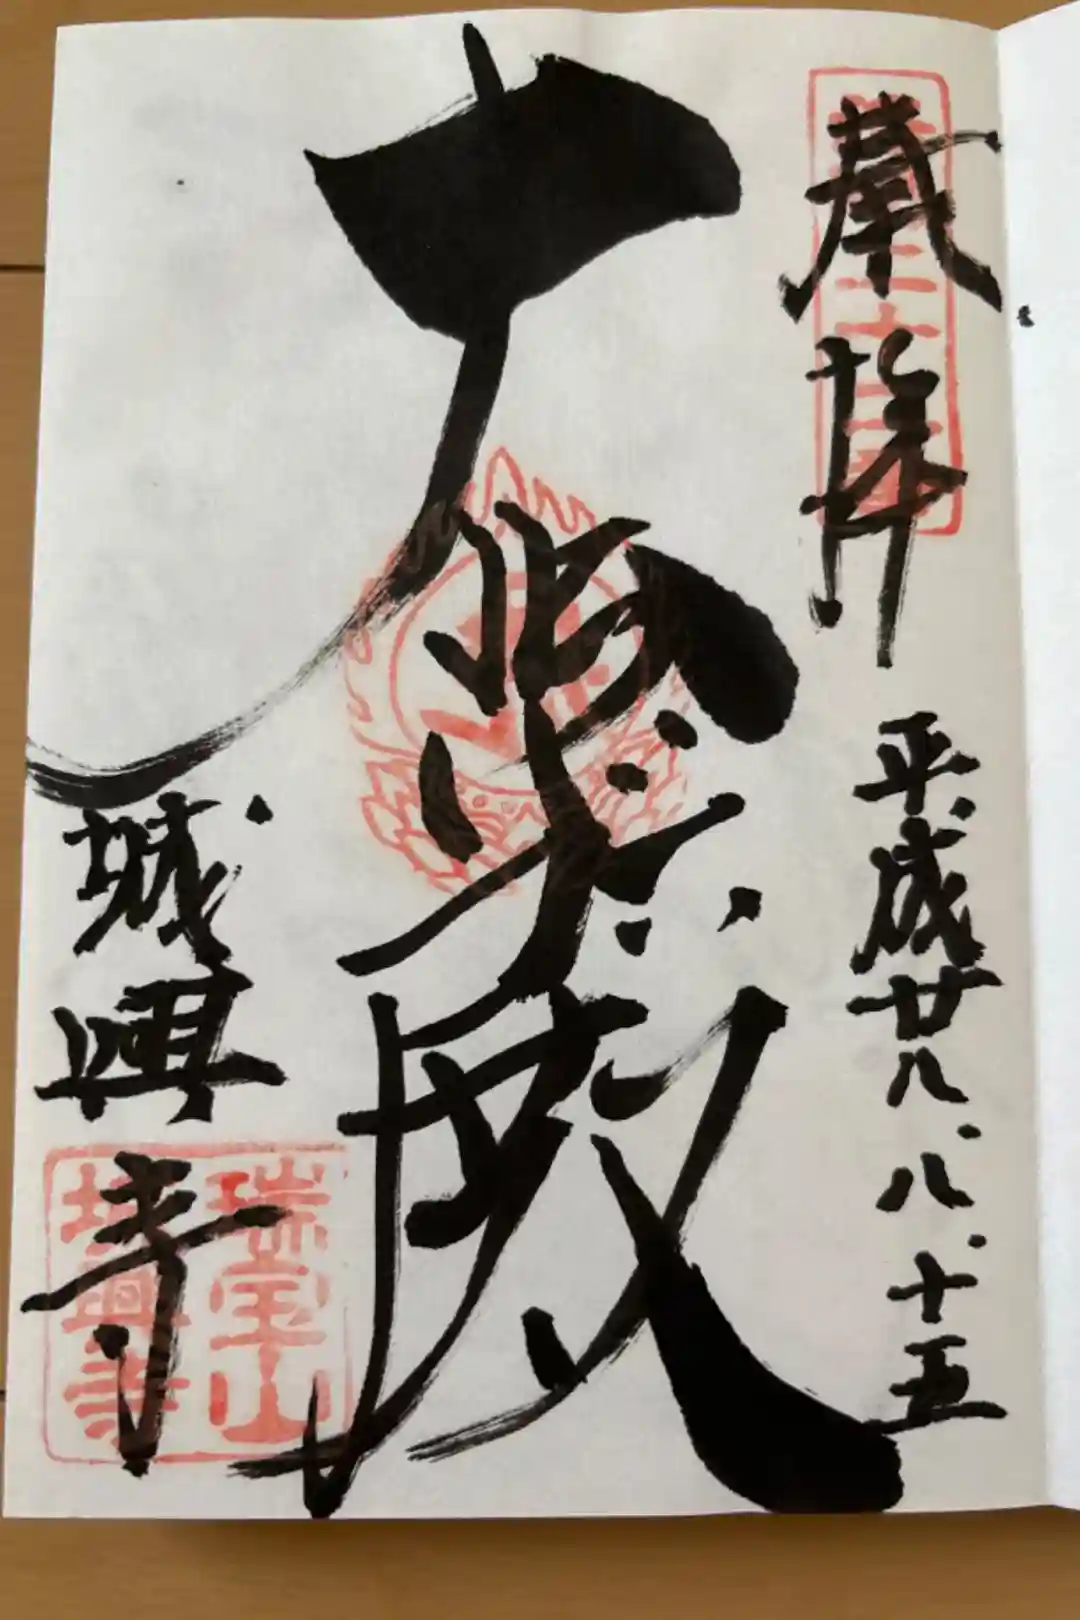 奉拝
平成廿八.八.十五
大悲殿
城興寺
瑞宝山
城興寺